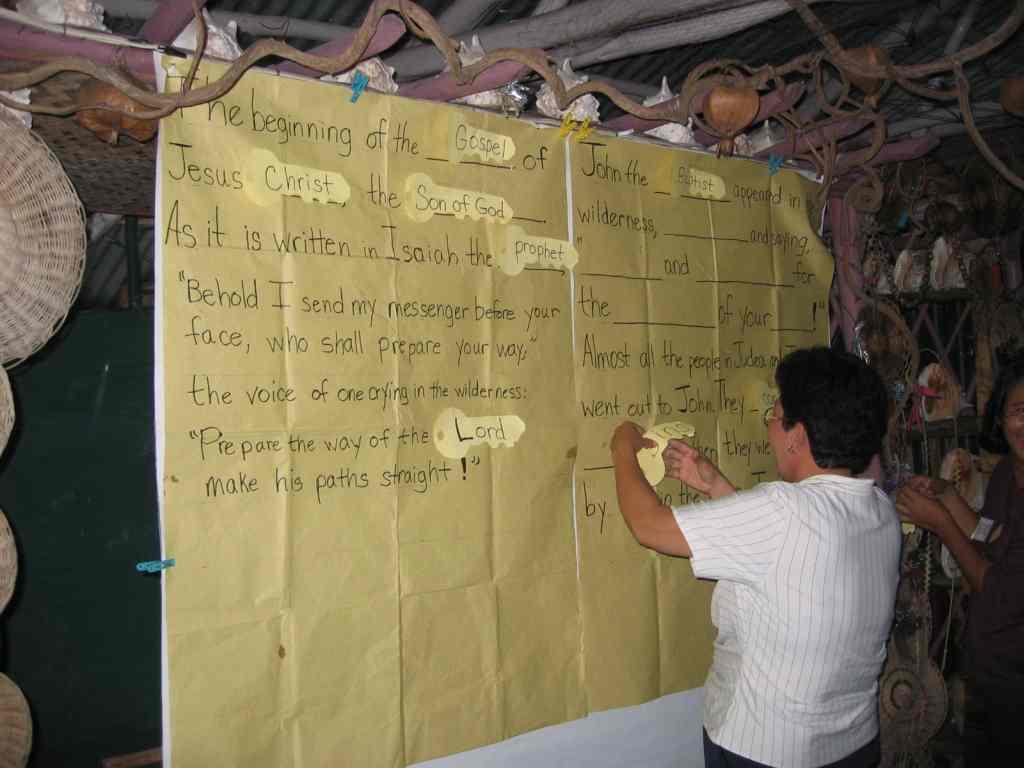 The beginning of the Gospel of
Jesus Christ, the Son of God
As it is written in Isaiah the prophet
"Behold I send my messenger before your
face, who shall prepare your way;"
the voice of one crying in the wilderness:
"Prepare the way of the Lord
make his paths straight!"
John the Baptist appeared in
wilderness, ________ and saying,
"________ and ________ for
the ________ of your ____!"
Almost all the people in Judea
went out to John. They
they we
by in the